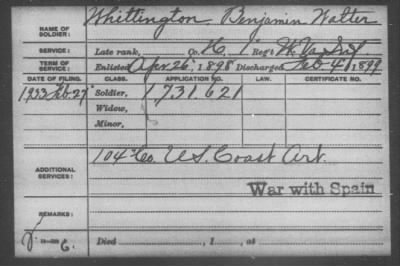 NAME OF SOLDIER: Whittington, Benjamin Walter
SERVICE: Late rank, Co. K, 1 Reg't W. Va. Inf.
TERM OF SERVICE: Enlisted Apr 26, 1898 Discharged Feb 4, 1899
DATE OF FILING. CLASS. APPLICATION NO. LAW. CERTIFICATE NO.
1933 Feb. 27 Soldier, 1,731,621
Widow,
Minor,
ADDITIONAL SERVICES: 104" Co. U.S. Coast Art.
War with Spain
REMARKS:
Died , 1 , at